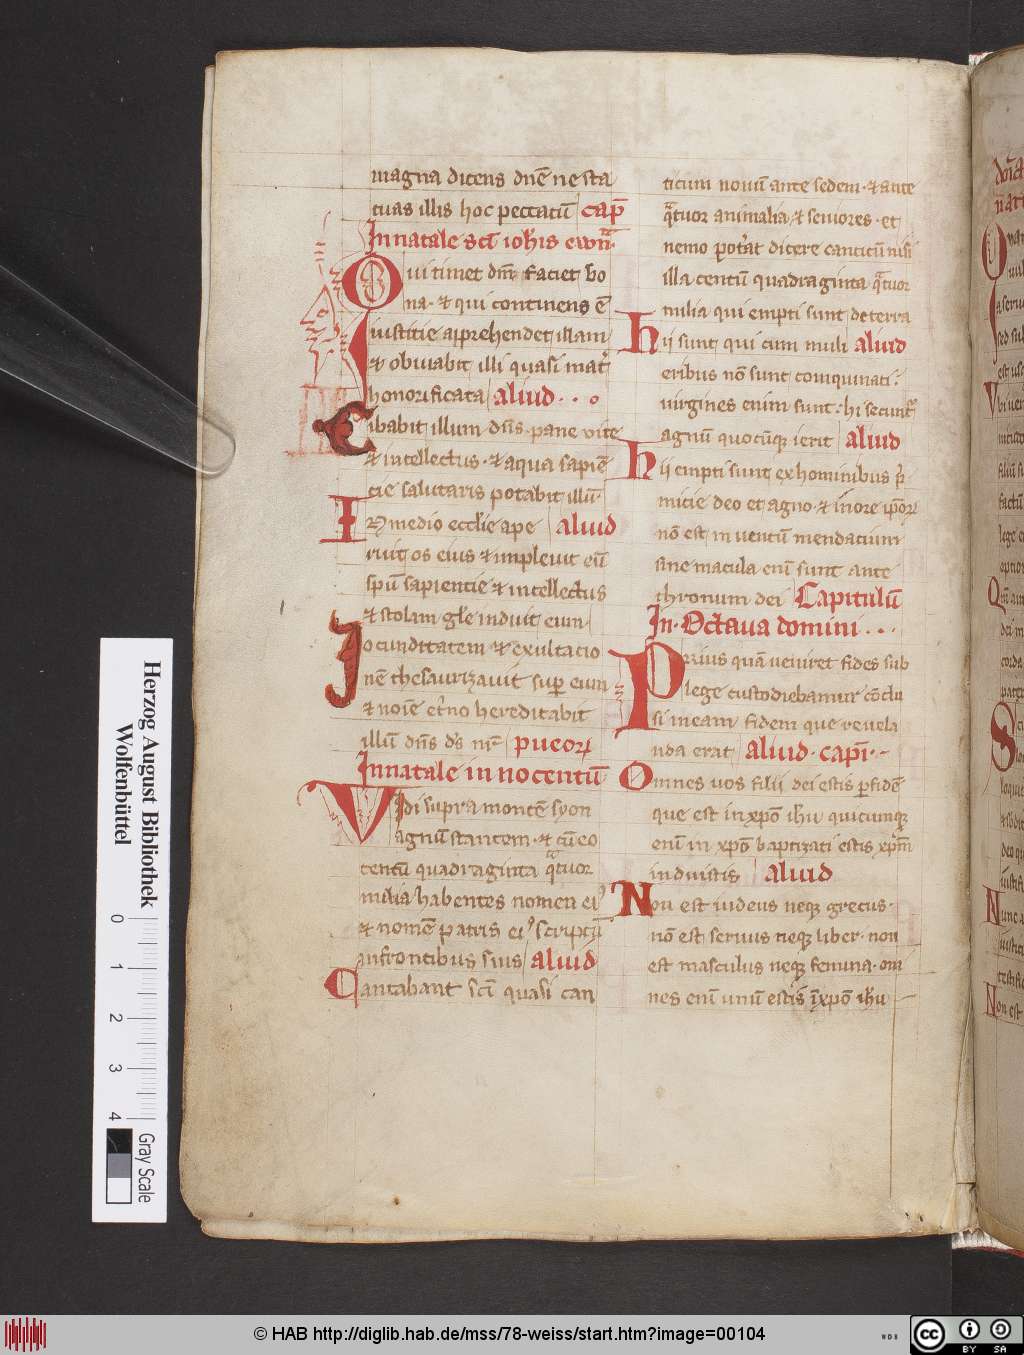 magna dicens dnē ne sta
tuas illis hoc peccatū cap̄
In natale scī ioh̄is ewn̄.
Qui timet dm̄ faciet bo
na. et qui continens ē
iustitie apprehendet illam
et obuiabit illi quasi mat̄
honorificata aliud...
Cibabit illum dn̄s. pane vite
et intellectus. et aqua sapiē
cie salutaris potabit illū.
In medio eccl̄ie ape aliud
ruit os eius et impleuit eū
spū sapientie et intellectus
et stolam gl̄e induit eum
Jocunditatem et exultacio
nē thesaurizauit sup̄ eum
et noīe et̄no hereditabit
illū dn̄s ds̄ nr̄ pueoꝝ
In natale innocentū
Vidi supra montē syon
agnū stantem. et cū eo
centū quadraginta qᵃtuor
milia habentes nomen eiꝰ
et nomē patris eiꝰ scriptū
in frontibus suis aliud
Cantabant scī quasi can
ticum nouū ante sedem. et ante
qᵃtuor animalia. et seniores. et
nemo pot̄at dicere canticū nisi
illa centū quadraginta qᵃtuor
milia qui empti sunt de terra
hii sunt qui cum muli aliud
eribus nō sunt coinquinati.
virgines enim sunt. hi secunt̄
agnū quocūqꝫ ierit aliud
hii empti sunt ex hominibus p̄
micie deo et agno. et in ore ip̄oꝝ
nō est inuentū mendacium
sine macula enī sunt ante
thronum dei Capitulū
In. Octaua domini...
Prius quā veniret fides sub
lege custodiebamur cōclu
si in eam fidem que reuela
nda erat aliud. capī.
Omnes uos filii dei estis p̄ fidē
que est in xp̄o ih̄u quicumqꝫ
enī in xp̄o baptizati estis xp̄m
induistis aliud
Non est iudeus neqꝫ grecus.
nō est seruus neqꝫ liber. non
est masculus neqꝫ femina. om̄
nes enī unū estis ī xp̄o ih̄u
Herzog August Bibliothek
Wolfenbüttel
0 1 2 3 4
Gray Scale
© HAB http://diglib.hab.de/mss/78-weiss/start.htm?image=00104
WDB
cc BY SA